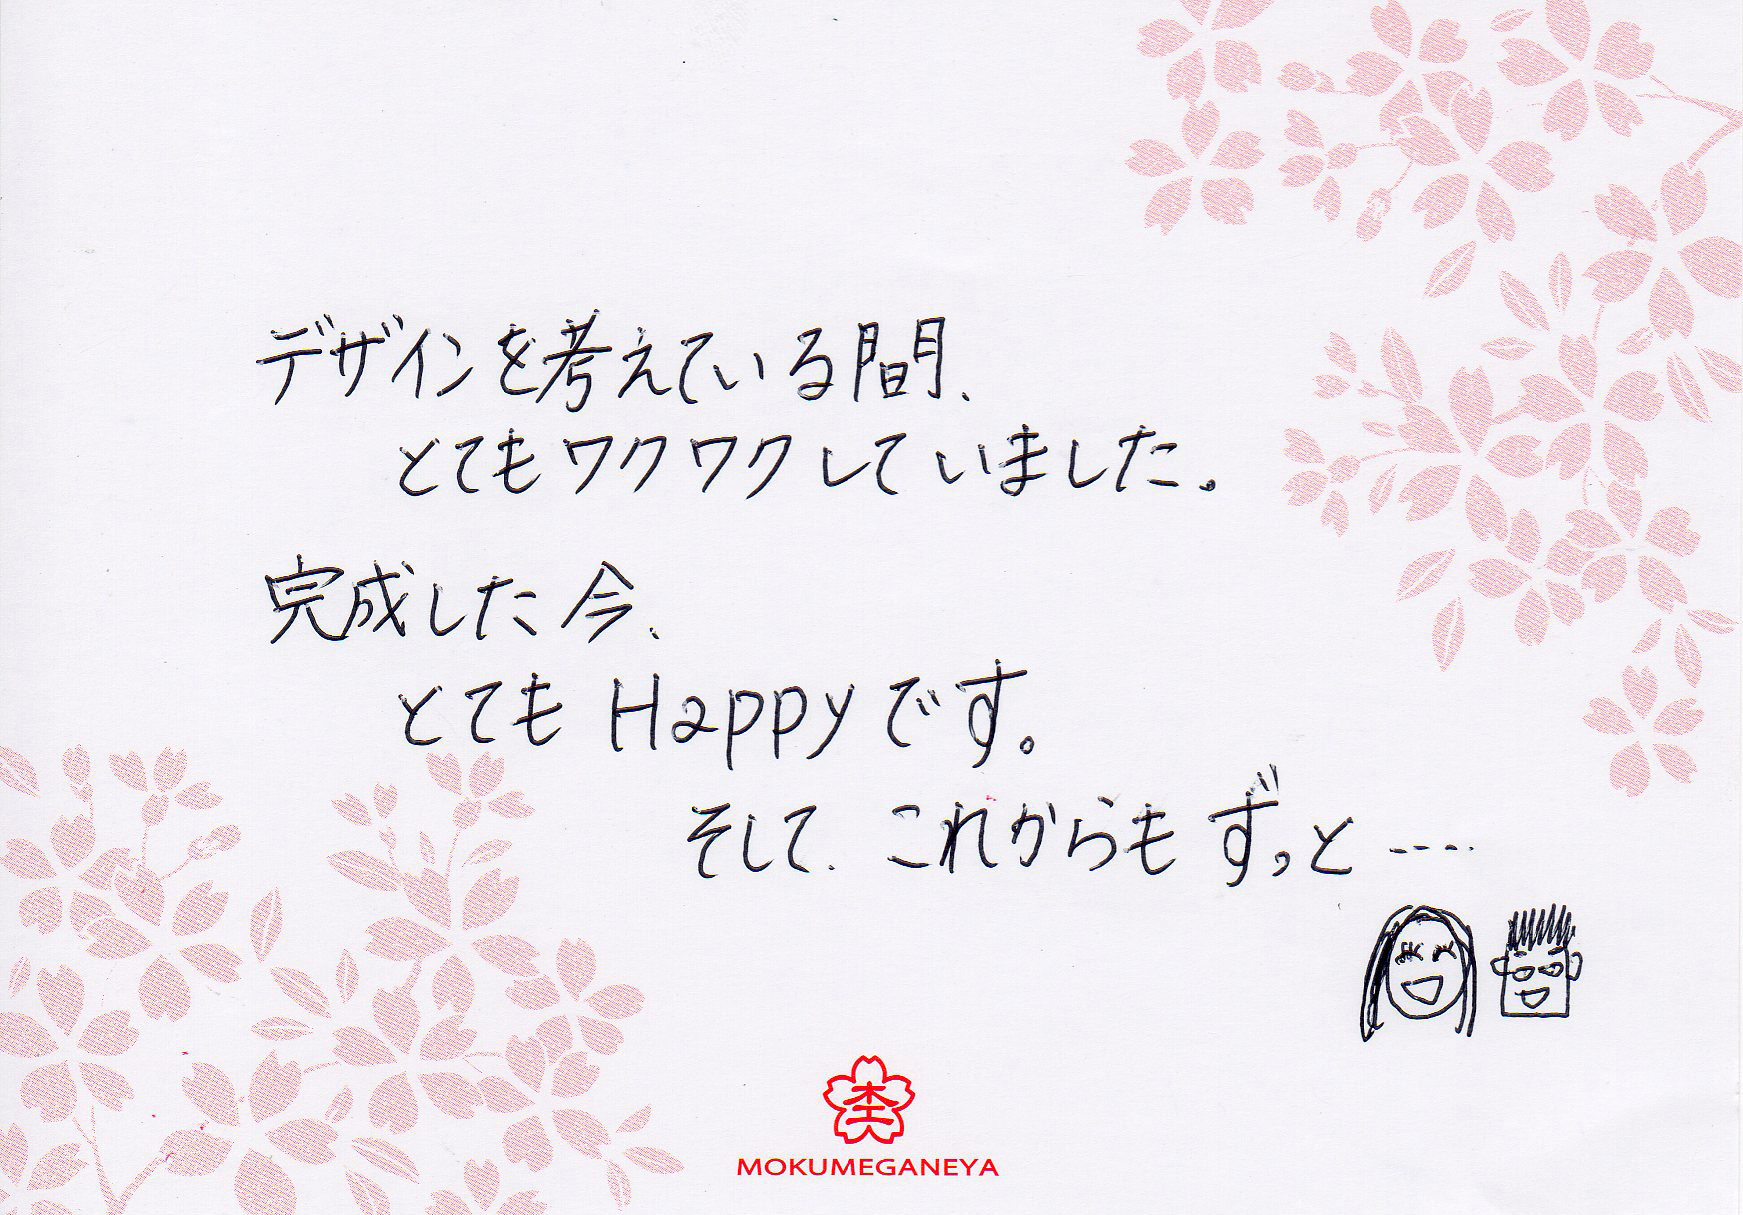 デザインを考えている間、
とてもワクワクしていました。
完成した今、
とてもHappyです。
そして、これからもずっと----
杢
MOKUMEGANEYA